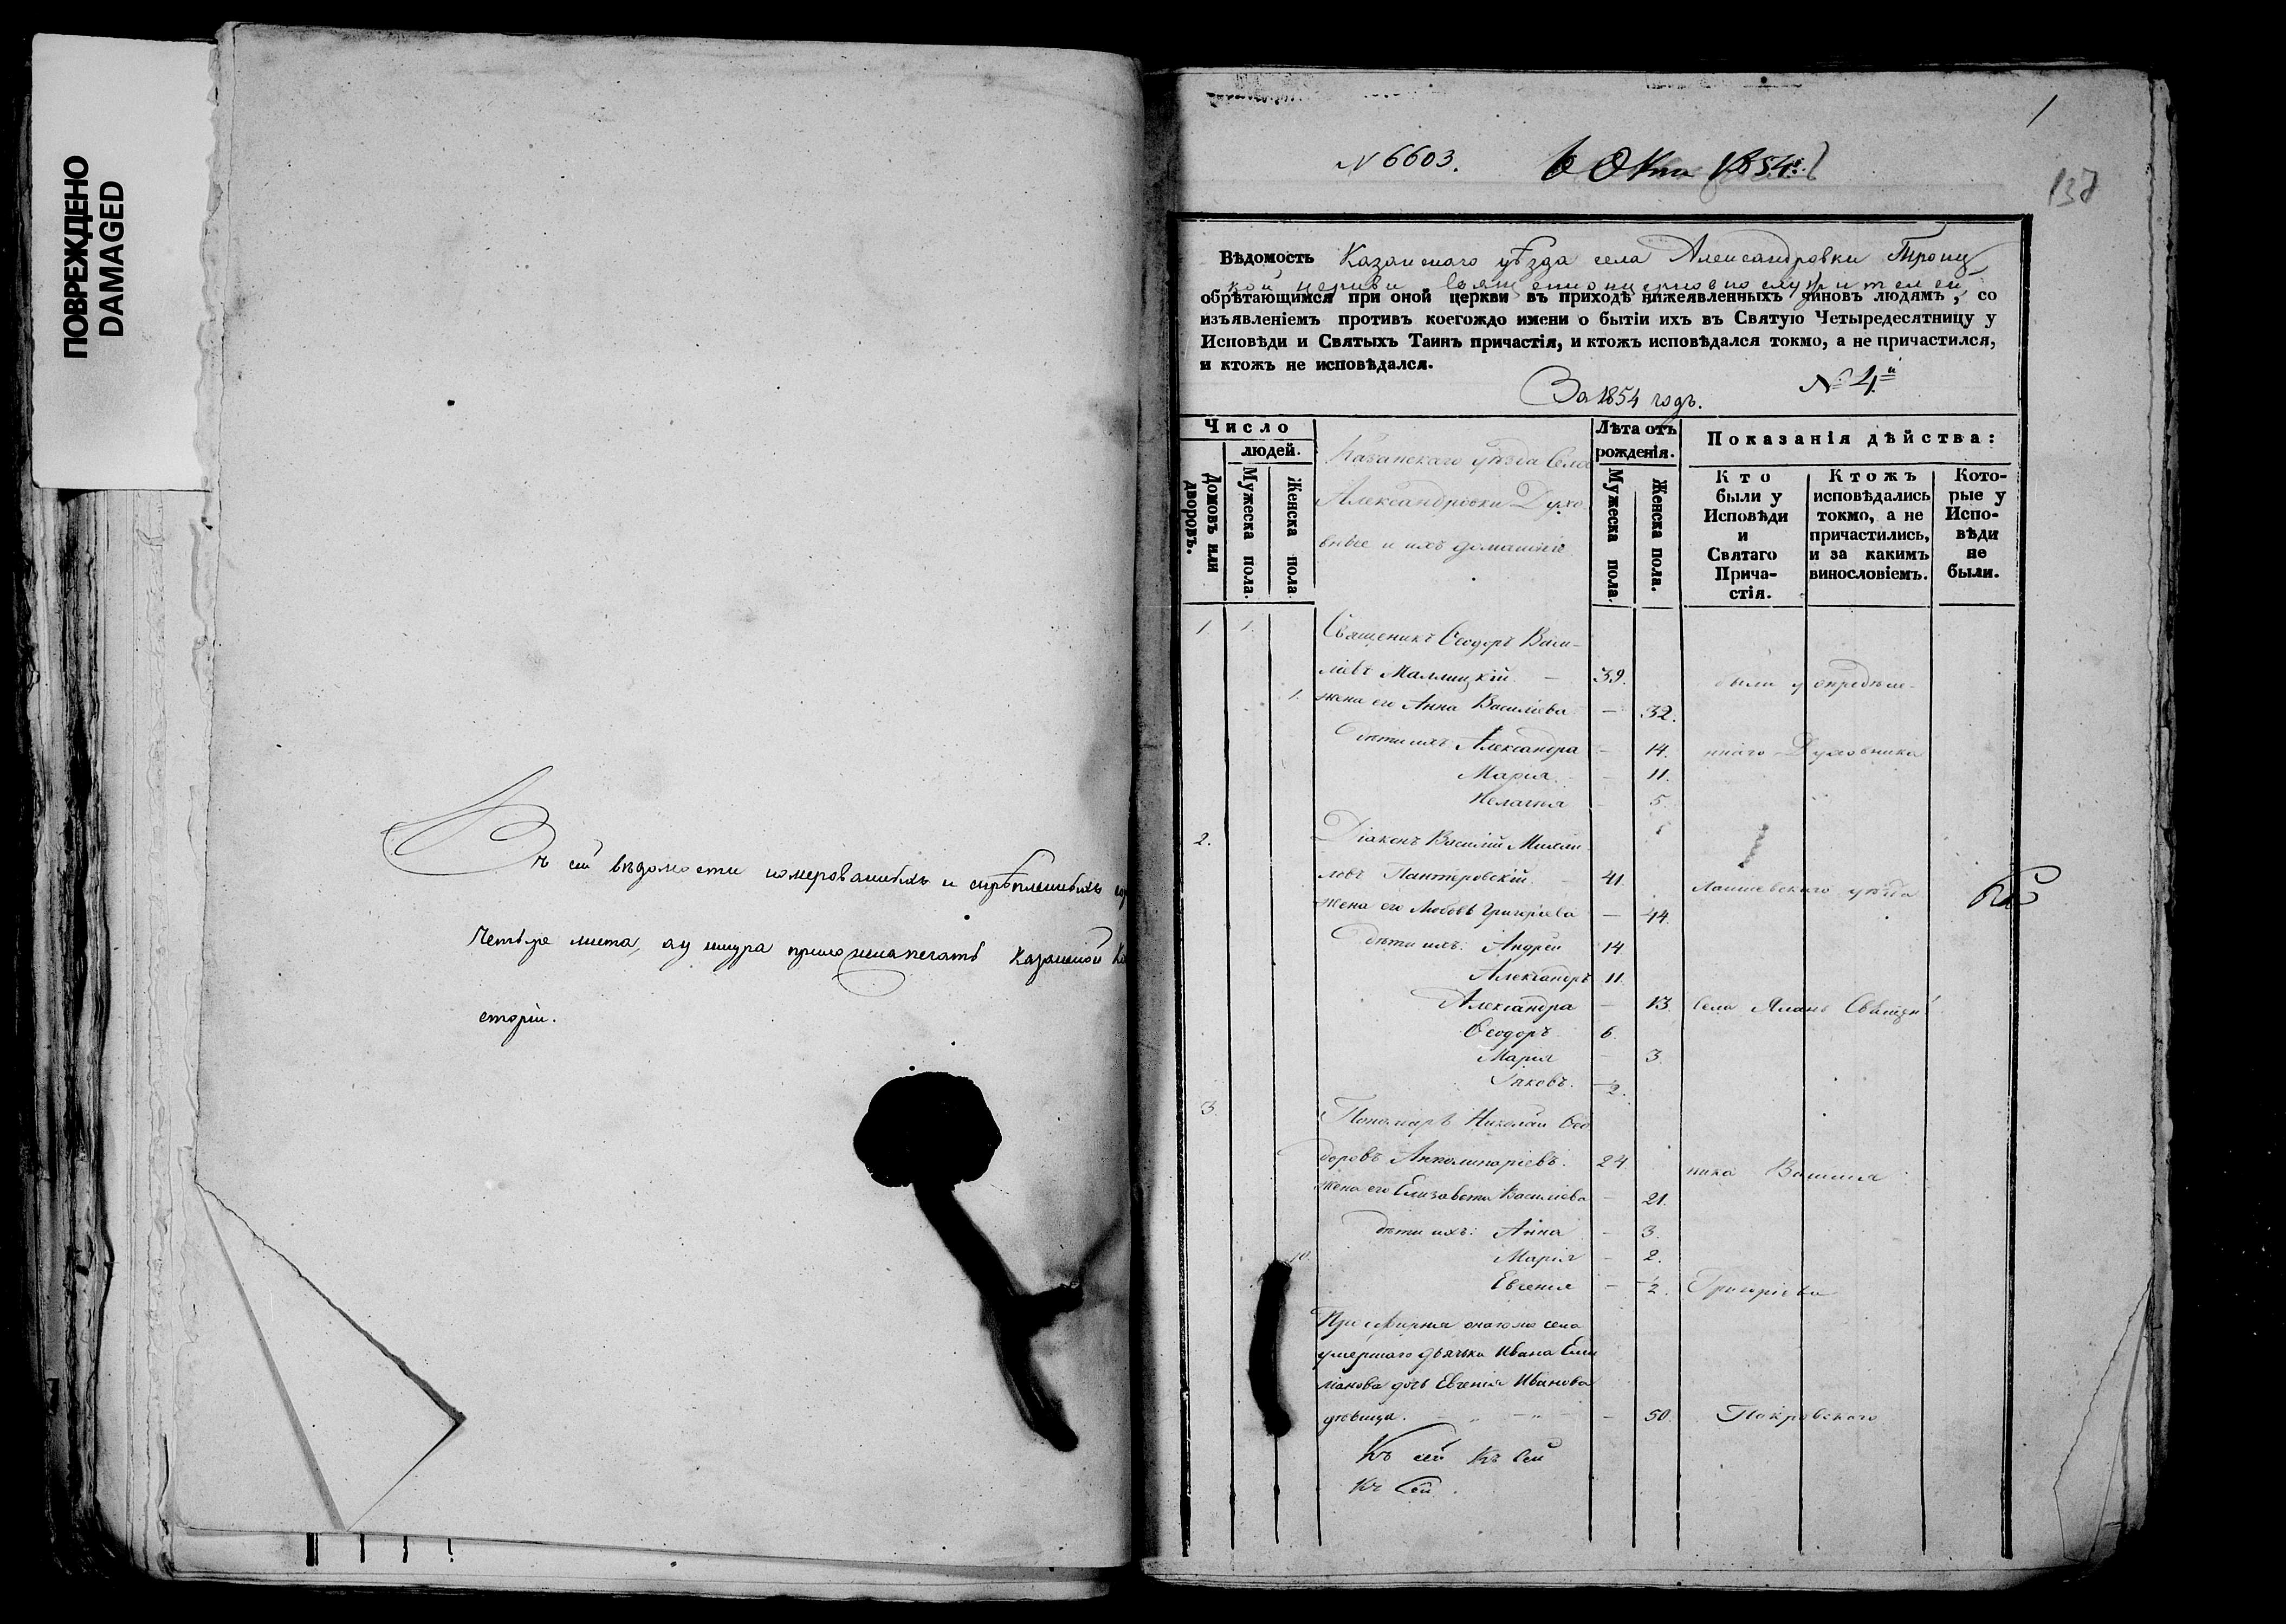 ПОВРЕЖДЕНО
DAMAGED
Въ сей вѣдомости номерованныхъ и скрѣпленныхъ
Четыре листа, а у шнура приложена печать Казанской
сторіи.
1
N 6603. 6 Окт 1854.
137
Вѣдомость Казанскаго уѣзда села Александровки Троиц
кой церкви священноцерковнослужителей,
обрѣтающимся при оной церкви въ приходѣ нижеявленныхъ чиновъ людямъ, со
изъявленіемъ противъ коегождо имени о бытіи ихъ въ Святую Четыредесятницу у
Исповѣди и Святыхъ Таинъ причастія, и ктожъ исповѣдался токмо, а не причастился,
и ктожъ не исповѣдался.
№ 4й
За 1854 годъ.
Число
людей.
Домовъ или дворовъ.
Мужеска пола.
Женска пола.
Казанскаго уѣзда Села
Александровки Духо
вные и ихъ домашніе.
Лѣта отъ
рожденія.
Мужеска пола.
Женска пола.
Показанія дѣйства:
Кто
были у
Исповѣди
и
Святаго
Прича-
стія.
Ктожъ
исповѣдались
токмо, а не
причастились,
и за какимъ
винословіемъ.
Кото-
рые у
Испо-
вѣди
не
были.
1. 1. Священикъ Ѳеодоръ Васи-
ліевъ Маллицкій. — 39. были у опредѣле-
1. жена его Анна Василіева — 32.
дѣти ихъ Александра — 14. ннаго Духовника
Марія — 11.
Пелагія — 5.
2. Діаконъ Василій Михаи
ловъ Пантеровскій. — 41. Лаишевскаго уѣзда
жена его Любовь Григоріева — 44.
дѣти ихъ: Андрей 14
Александръ 11
Александра — 13. села Яланъ Священ
Ѳеодоръ 6.
Марія — 3.
Іаковъ. ½.
3. Пономарь Николай Ѳео
доровъ Апполинаріевъ. 24. ника Василія
жена его Елизавета Василіева — 21.
дѣти ихъ: Анна — 3.
10. Марія — 2.
Евгенія — ½. Григоріева
Просфирня онаго же села
умершаго дьячька Ивана Еми
ліанова дочь Евгенія Иванова
дѣвица. — 50. Покровскаго
Къ сей Къ Сей
Къ Сей.